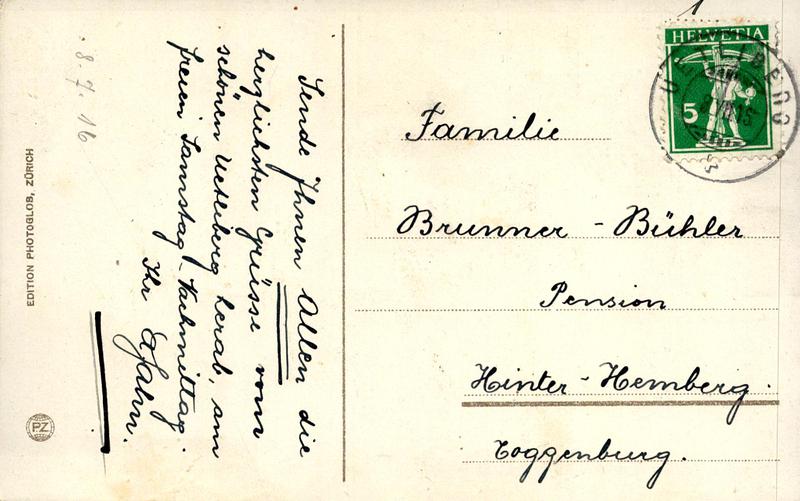 8.7.16
Sende Ihnen Allen die
herzlichsten Grüsse vom
schönen Uetliberg herab, am
freien Samstag-Nachmittag.
Ihr
EDITION PHOTOGLOB, ZÜRICH
PZ
HELVETIA
5
UETLIBERG
Familie
Brunner - Bühler
Pension
Hinter-Hemberg.
Toggenburg.